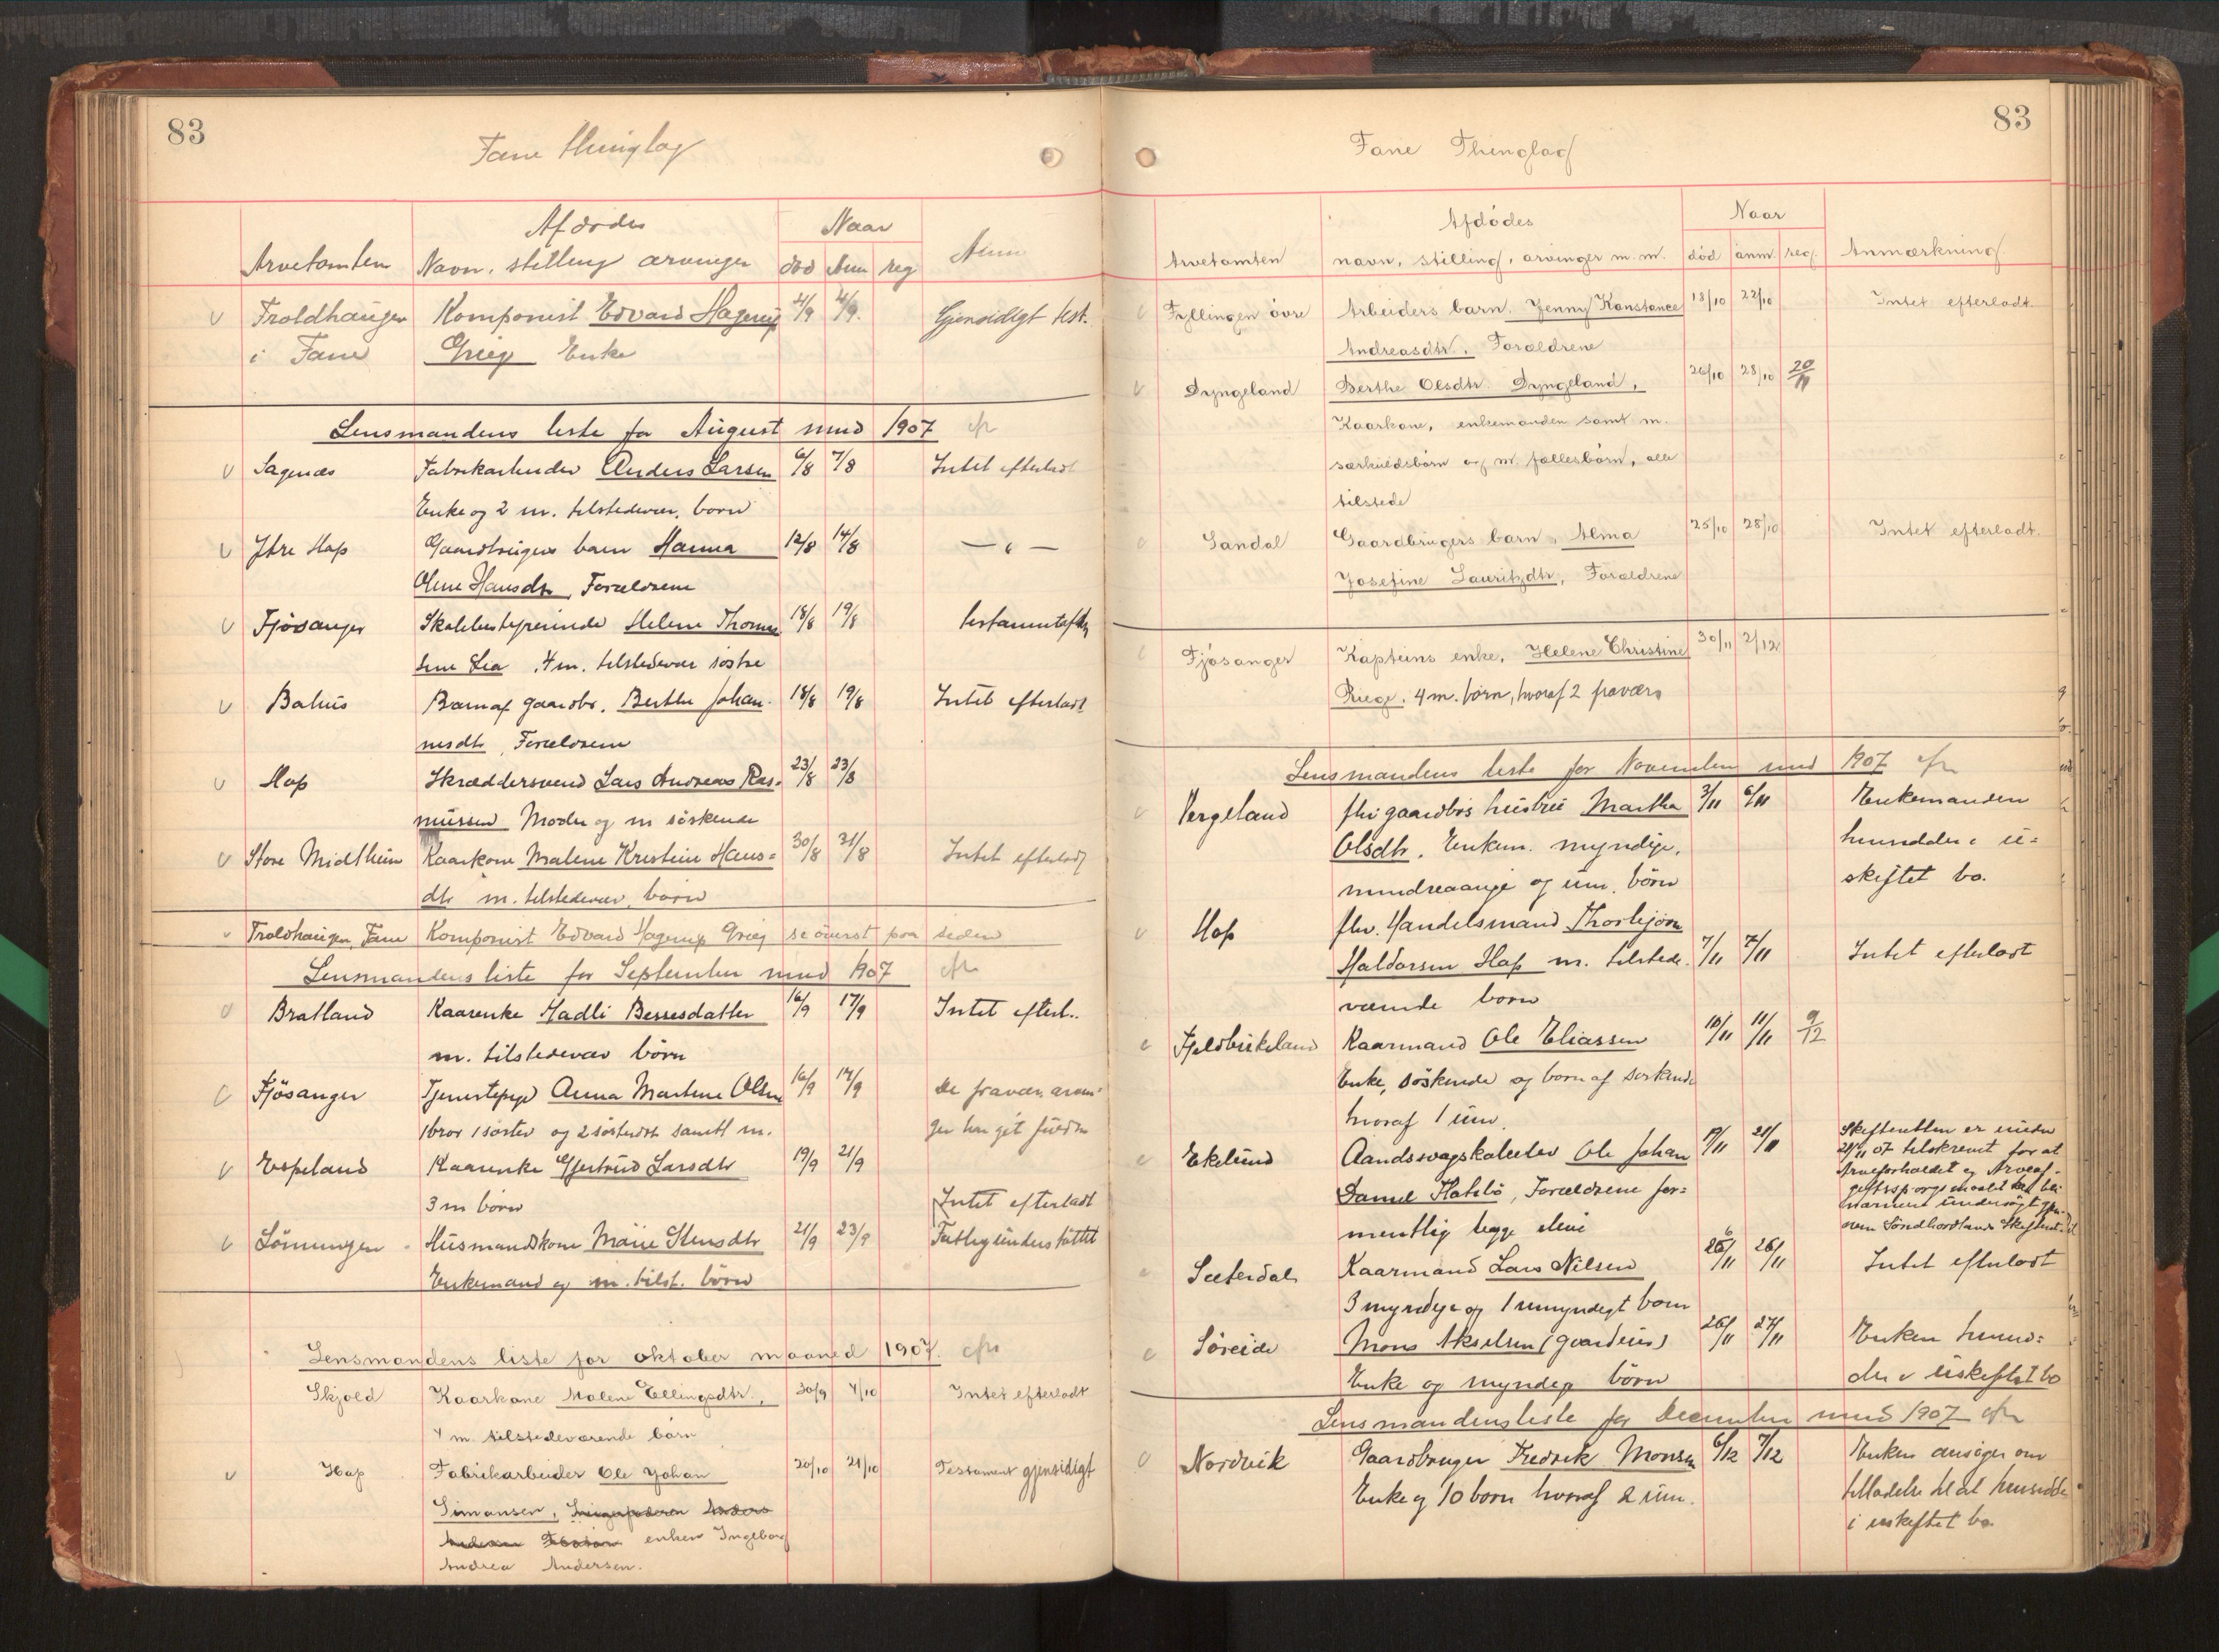 83
Fane thinglag
Arvetomten
Afdødes
Navn, stilling arvinger
Naar
død Anm reg
Anm
Troldhaugen Komponist Edvard Hagerup 4/9 4/9. Gjensidigt test.
i Fane Grieg Enke
Lensmandens liste for August mnd 1907 efr
Sagenæs Fabrikarbeider Anders Larsen 6/8 7/8 Intet efterladt
Enke og 2 m. tilstedevær. børn
Ytre Hop Gaardbrugers barn Hanna 12/8 14/8 — " —
Oline Hansdtr, Forældrene
Fjøsanger Skolebestyrerinde Helene Thomas 18/8 19/8
sine Lea, 4 m. tilstedevær søstre
Bahus Barn af gaardbr. Berthe Johan- 18/8 19/8 Intet efterladt
nesdtr, Forældrene
Hop Skræddersvend Lars Andreas Ras- 23/8 23/8
mussen Moder og m søskende
Store Midtheim Kaarkone Malene Kristine Hans= 30/8 31/8 Intet efterladt
dtr m. tilstedevær børn
Troldhaugen, Fane Komponist Edvard Hagerup Grieg se øverst paa siden
Lensmandens liste for September mnd 1907 efr
Bratland Kaarenke Madli Bessesdatter 16/9 17/9 Intet efterl..
m. tilstedevær børn
Fjøsanger Tjenestepige Anna Martine Olsen 16/9 17/9 De fravær. arvin=
1 bror 1 søster og 2 søsterdtr samtl m. ger har git fuldm
Espeland Kaarenke Gjertrud Larsdtr 19/9 21/9
3 m børn Intet efterladt
Lønningen Husmandskone Marie Stensdtr 21/9 23/9 Fattigunderstøttet
Enkemand og m. tilst. børn
Lensmandens liste for oktober maaned 1907. efr
Skjold Kaarkone Malene Ellingsdtr., 30/9 4/10 Intet efterladt
4 m. tilstedeværende børn
Hop Fabrikarbeider Ole Johan 20/10 21/10 Testament gjensidigt
Simonsen, enken Ingeborg
Andrea Andersen.
83
Fane Thinglag
Arvetomten
Afdødes
navn, stilling, arvinger m. m.
Naar
død anm. reg.
Anmærkning
Fyllingen øvre Arbeiders barn. Jenny Konstance 18/10 22/10 Intet efterladt.
Andreasdtr., Forældrene
Dyngeland Berthe Olsdtr. Dyngeland, 26/10 28/10 20/11
Kaarkone, enkemanden samt m.
særkuldsbørn og m. fællesbørn, alle
tilstede
Sandal Gaardbrugers barn, Alma 25/10 28/10 Intet efterladt.
Josefine Lauritzdtr, Forældrene
Fjøsanger Kapteins enke, Helene Christine 30/11 2/12
Riege. 4 m. børn, hvoraf 2 fravær.
Lensmandens liste for November mnd 1907 efr
Vergeland fhv gaardbrs hustru Martha 3/11 6/11 Enkemanden
Olsdtr. Enkem. myndige, hensidder i u=
mindreaarige og um. børn skiftet bo.
Hop fhv. Handelsmand Thorbjørn
Haldorsen Hop m. tilstede- 7/11 7/11 Intet efterladt
værende børn
Fjeldbirkeland Kaarmand Ole Eliassen 10/11 11/11 9/12
Enke, søskende og børn af søskende
hvoraf 1 um.
Ekelund Aandssvagskoleelev Ole Johan 19/11 21/11 Skifteretten er under
Daniel Flatebø, Forældrene for= 21/11 07 tilskrevet for at
mentlig begge ilive Arveforholdet og Arveaf-
giftsspørgsmaalet kan bli
nærmere undersøgt gjen-
nem Søndhordlands Skifteret
Sæterdal Kaarmand Lars Nilsen 26/11 26/11 Intet efterladt
3 myndige og 1 umyndigt barn
Søreide Mons Akselsen (gaardbrus) 26/11 27/11 Enken hensid=
Enke og myndige børn der i uskiftet bo
Lensmandens liste for December mnd 1907 efr
Nordvik Gaardbruger Fredrik Monsen 6/12 7/12 Enken ansøger om
Enke og 10 børn hvoraf 2 um. tilladelse til at hensidde
i uskiftet bo